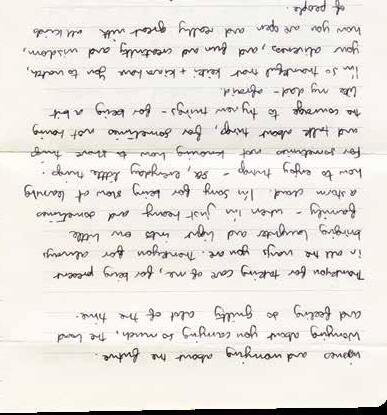 and worrying about the future.
Worrying about you carrying so much, the land
and feeling so guilty alot of the time.
Thankyou for taking care of me, for being present
in all the ways you are. Thankyou for always
bringing laughter and light into our little
family - when I'm just teary and sometimes
a storm cloud. I'm sorry for being slow at learning
how to enjoy things - everyday little things.
for sometimes not knowing how to share things
and talk about things, for sometimes not having
the courage to try new things - for being a bit
like my dad - afraid.
I'm so thankful that + have you to watch,
your aliveness, and fun and creativity and wisdom,
how you are open and really great with all kinds
of people.